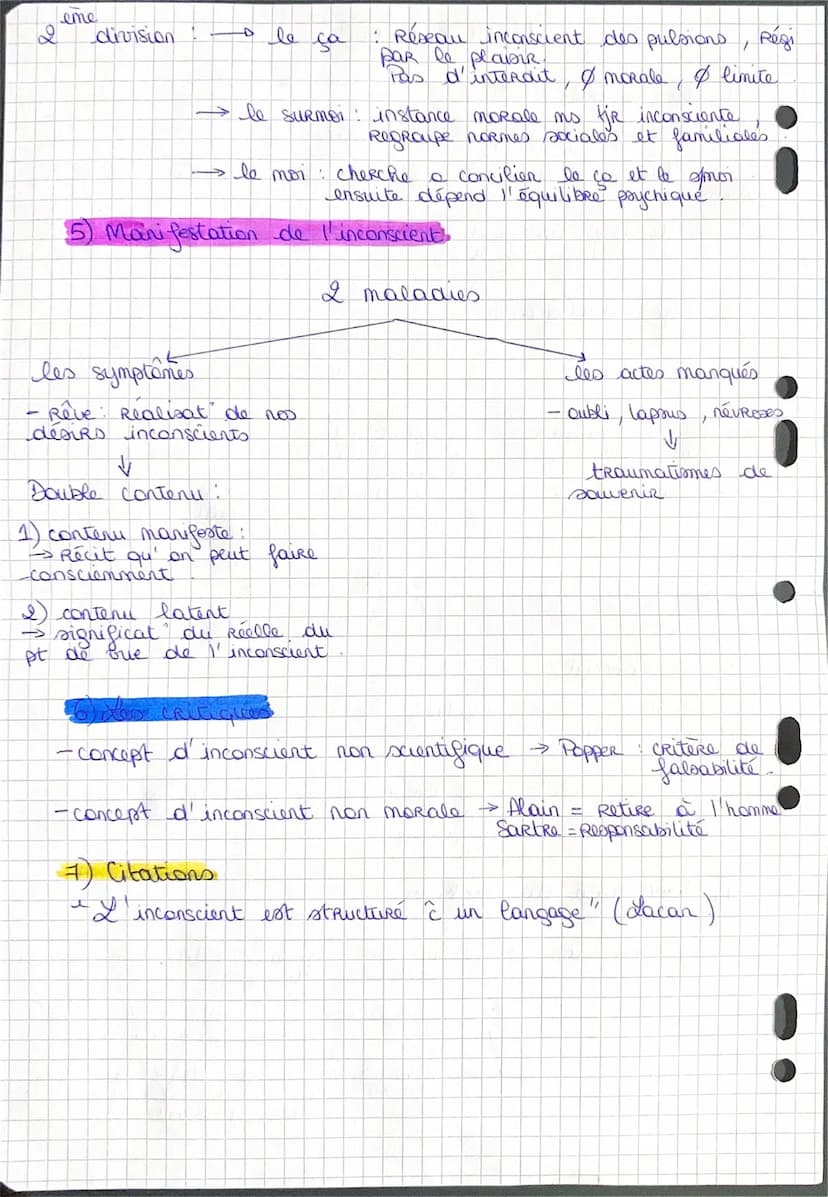 2ème division : → le ça : Réseau inconscient des pulsions, Régi
par le plaisir.
Pas d'interdit, Ø morale, Ø limite
→ le surmoi : instance morale ms tjr inconsciente,
Regroupe normes sociales et familiales.
→ le moi : cherche a concilier le ça et le
ensuite dépend l'équilibre psychique.
5) Manifestation de l'inconscient
2 maladies
les symptômes
les actes manqués
- Rêve : Réalisat° de nos
désirs inconscients
- oubli, lapsus, névroses
↓
traumatismes de
souvenir
↓
Double contenu :
1) contenu manifeste :
→ Récit qu'on peut faire
consciemment
2) contenu latent
→ significat° du réelle du
pt de vue de l'inconscient.
6) Les critiques
- concept d'inconscient non scientifique → Popper : critère de
falsabilité.
- concept d'inconscient non morale → Alain = Retire à l'homme
Sartre = Responsabilité
7) Citations
"L'inconscient est structuré ĉ un langage" (Lacan)